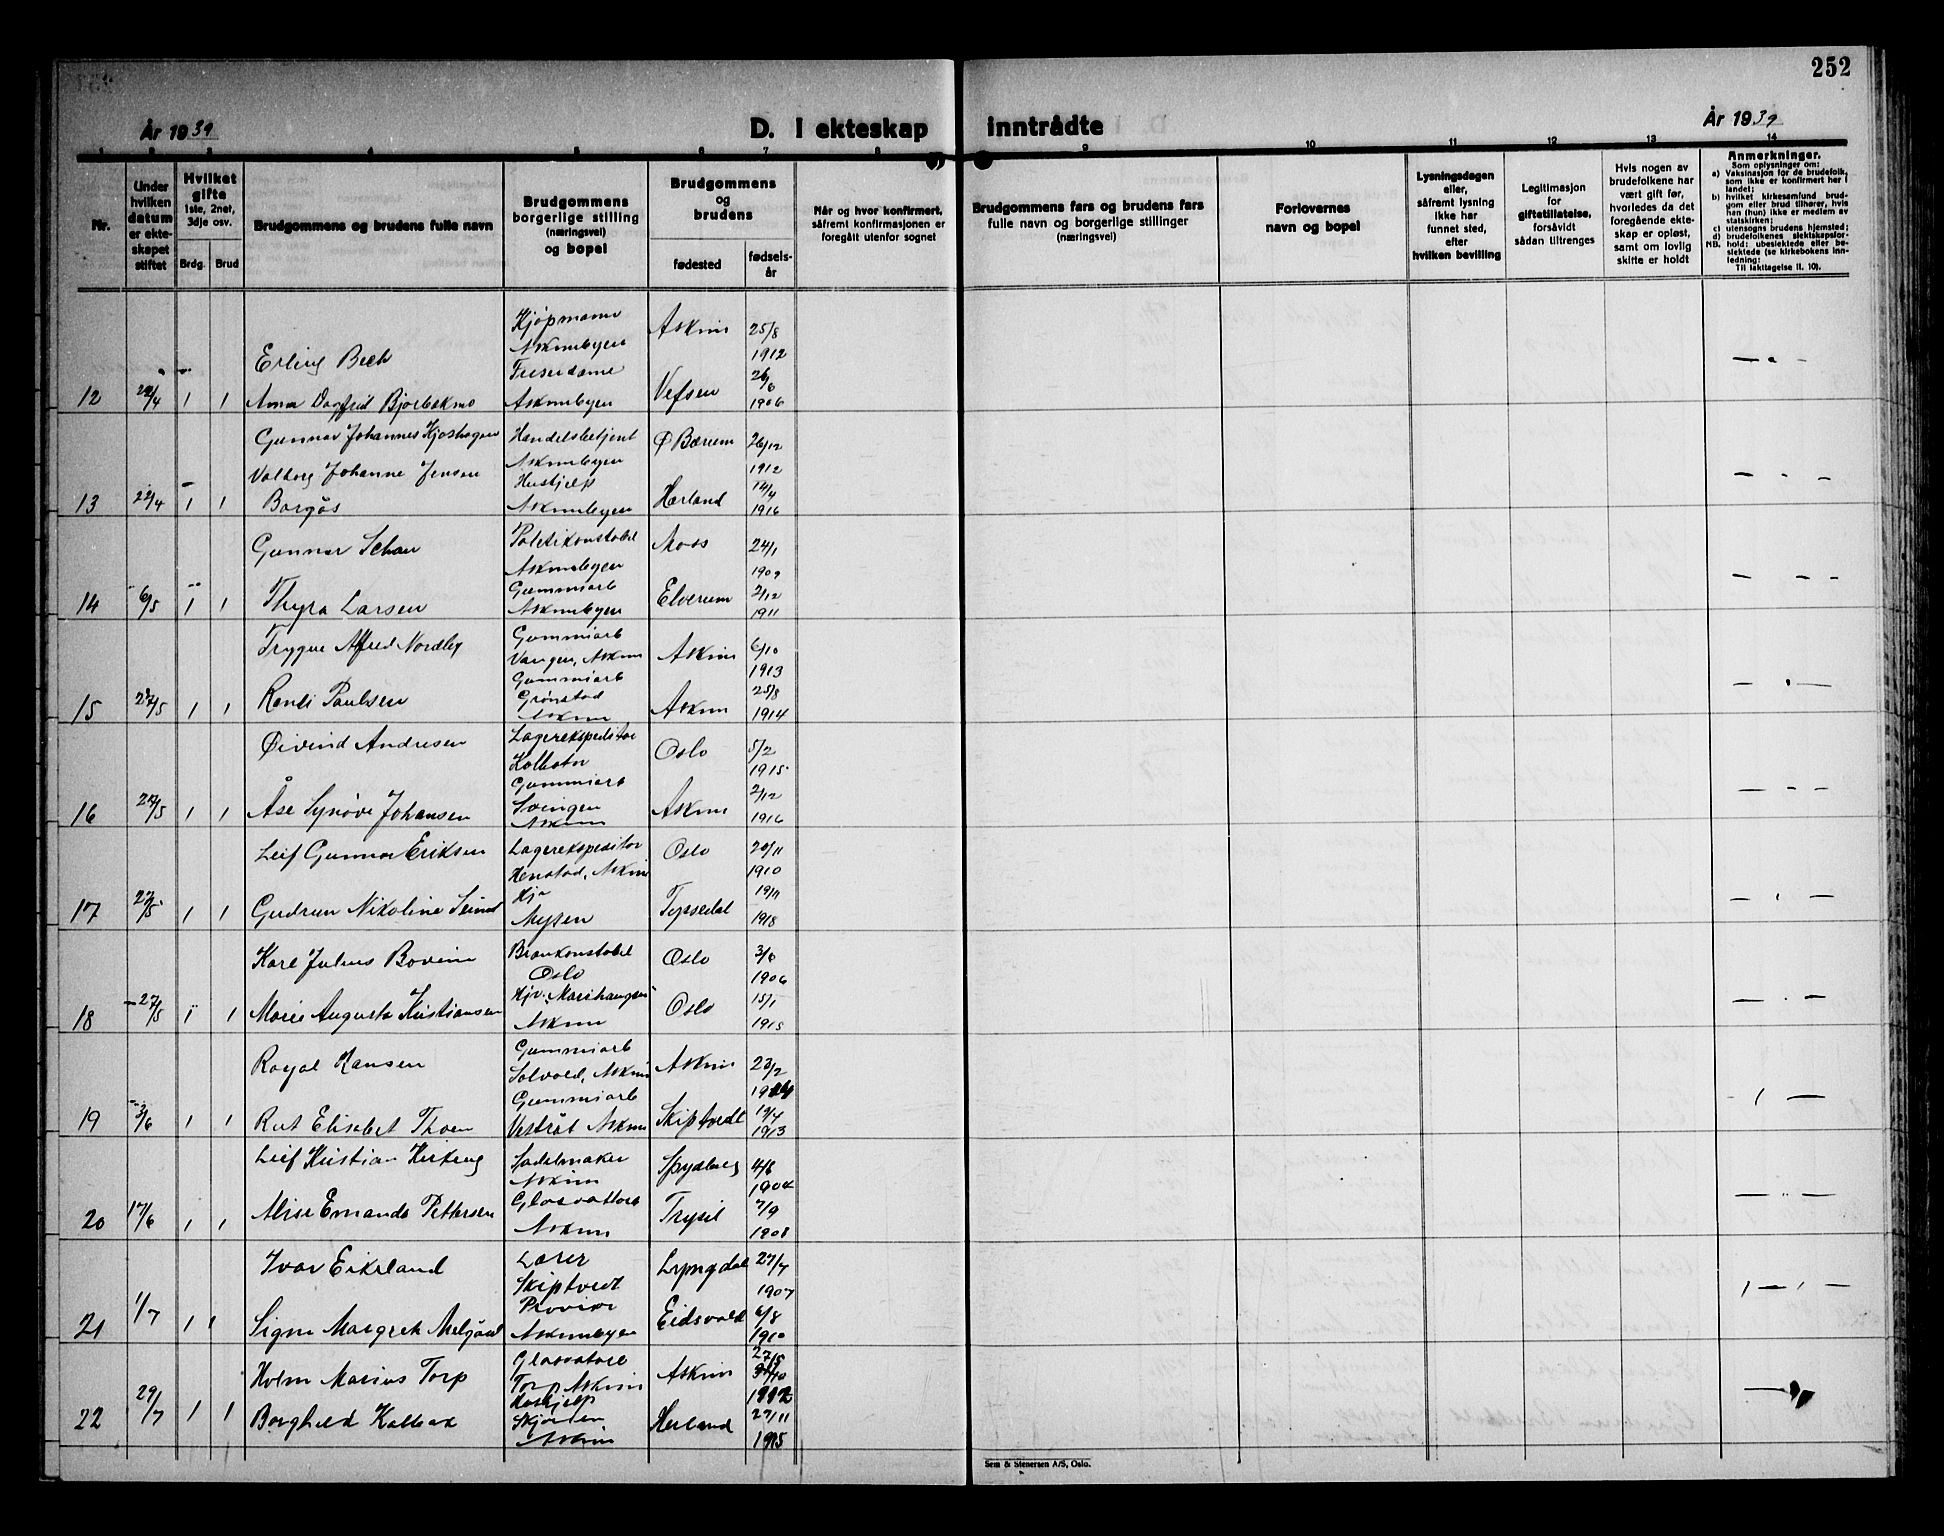 252
År 1939 D. I ekteskap inntrådte År 1939
1 2 3 4 5 6 7 8 9 10 11 12 13 14
Nr.
Under hvilken datum er ekteskapet stiftet
Hvilket gifte 1ste, 2net, 3dje osv.
Brdg. Brud
Brudgommens og brudens fulle navn
Brudgommens borgerlige stilling (næringsvei) og bopel
Brudgommens og brudens
fødested fødselsår
Når og hvor konfirmert, såfremt konfirmasjonen er foregått utenfor sognet
Brudgommens fars og brudens fars fulle navn og borgerlige stillinger (næringsvei)
Forlovernes navn og bopel
Lysningsdagen eller, såfremt lysning ikke har funnet sted, efter hvilken bevilling
Legitimasjon for giftetillatelse, forsåvidt sådan tiltrenges
Hvis nogen av brudefolkene har vært gift før, hvorledes da det foregående ekteskap er opløst, samt om lovlig skifte er holdt
Anmerkninger.
Som oplysninger om:
a) Vaksinasjon for de brudefolk, som ikke er konfirmert her i landet;
b) hvilket kirkesamfund brudgom eller brud tilhører, hvis han (hun) ikke er medlem av statskirken;
c) utensogns brudens hjemsted;
d) brudefolkenes slektskapsforhold: ubeslektede eller beslektede (se kirkebokens innledning:
NB. Til iakttagelse II. 10).
Kjøpmann Askim 25/8
Erling Bech Askimbyen 1912
Friserdame 26/6
12 22/4 1 1 Anna Dagfrid Bjorbekmo Askimbyen Vefsen 1906
Gunnar Johannes Kjoshagen Handelsbetjent Ø Bærum 26/12
Askimbyen 1912
Valborg Johanne Jensen Hushjelp 14/4
13 22/4 1 1 Borgås Askimbyen Hærland 1916
Gunnar Schau Politikonstabel Moss 24/1
Askimbyen 1909
Gummiarb 2/12
14 6/5 1 1 Thyra Larsen Askimbyen Elverum 1911
Trygve Alfred Nordby Gummiarb Askim 6/10
Vangen, Askim 1913
Gummiarb 25/8
15 27/5 1 1 Randi Paulsen Grønstad Askim Askim 1914
Øivind Andresen Lagerekspeditør Oslo 5/2
Kolbotn 1915
Gummiarb 2/12
16 27/5 1 1 Åse Synøve Johansen Svingen Askim Askim 1916
Leif Gunnar Eriksen Lagerekspeditør Oslo 20/11
Henstad, Askim 1910
Hjv 19/11
17 27/5 1 1 Gudrun Nikoline Mysen 1918
Kare Julius Bovim Brankonstabel Oslo 3/6
Oslo 1906
Hjv. Marihaugen 15/1
18 27/5 1 1 Marie Augusta Kristiansen Askim Oslo 1915
Royal Hansen Gummiarb Askim 23/2
Solvold, Askim
Gummiarb 19/4
19 3/6 1 1 Rut Elisabet Thoen Askim Skiptvedt 1913
Leif Kristian Sadelmaker Spydberg 4/6
Askim 1904
7/9
20 17/6 1 1 Alise Emanda Pettersen Askim Trysil 1908
Ivar Eikeland Lærer Lyngdal 27/7
Skiptvedt 1907
6/8
21 1/7 1 1 Signe Margrete Melgård Askimbyen Eidsvold 1910
Holm Marius Torp Askim 27/5
Torp Askim 1912
Hushjelp 27/11
22 29/7 1 1 Borghild Kolbæk Skjørten Askim Herland 1915
Sem & Stenersen A/S, Oslo.